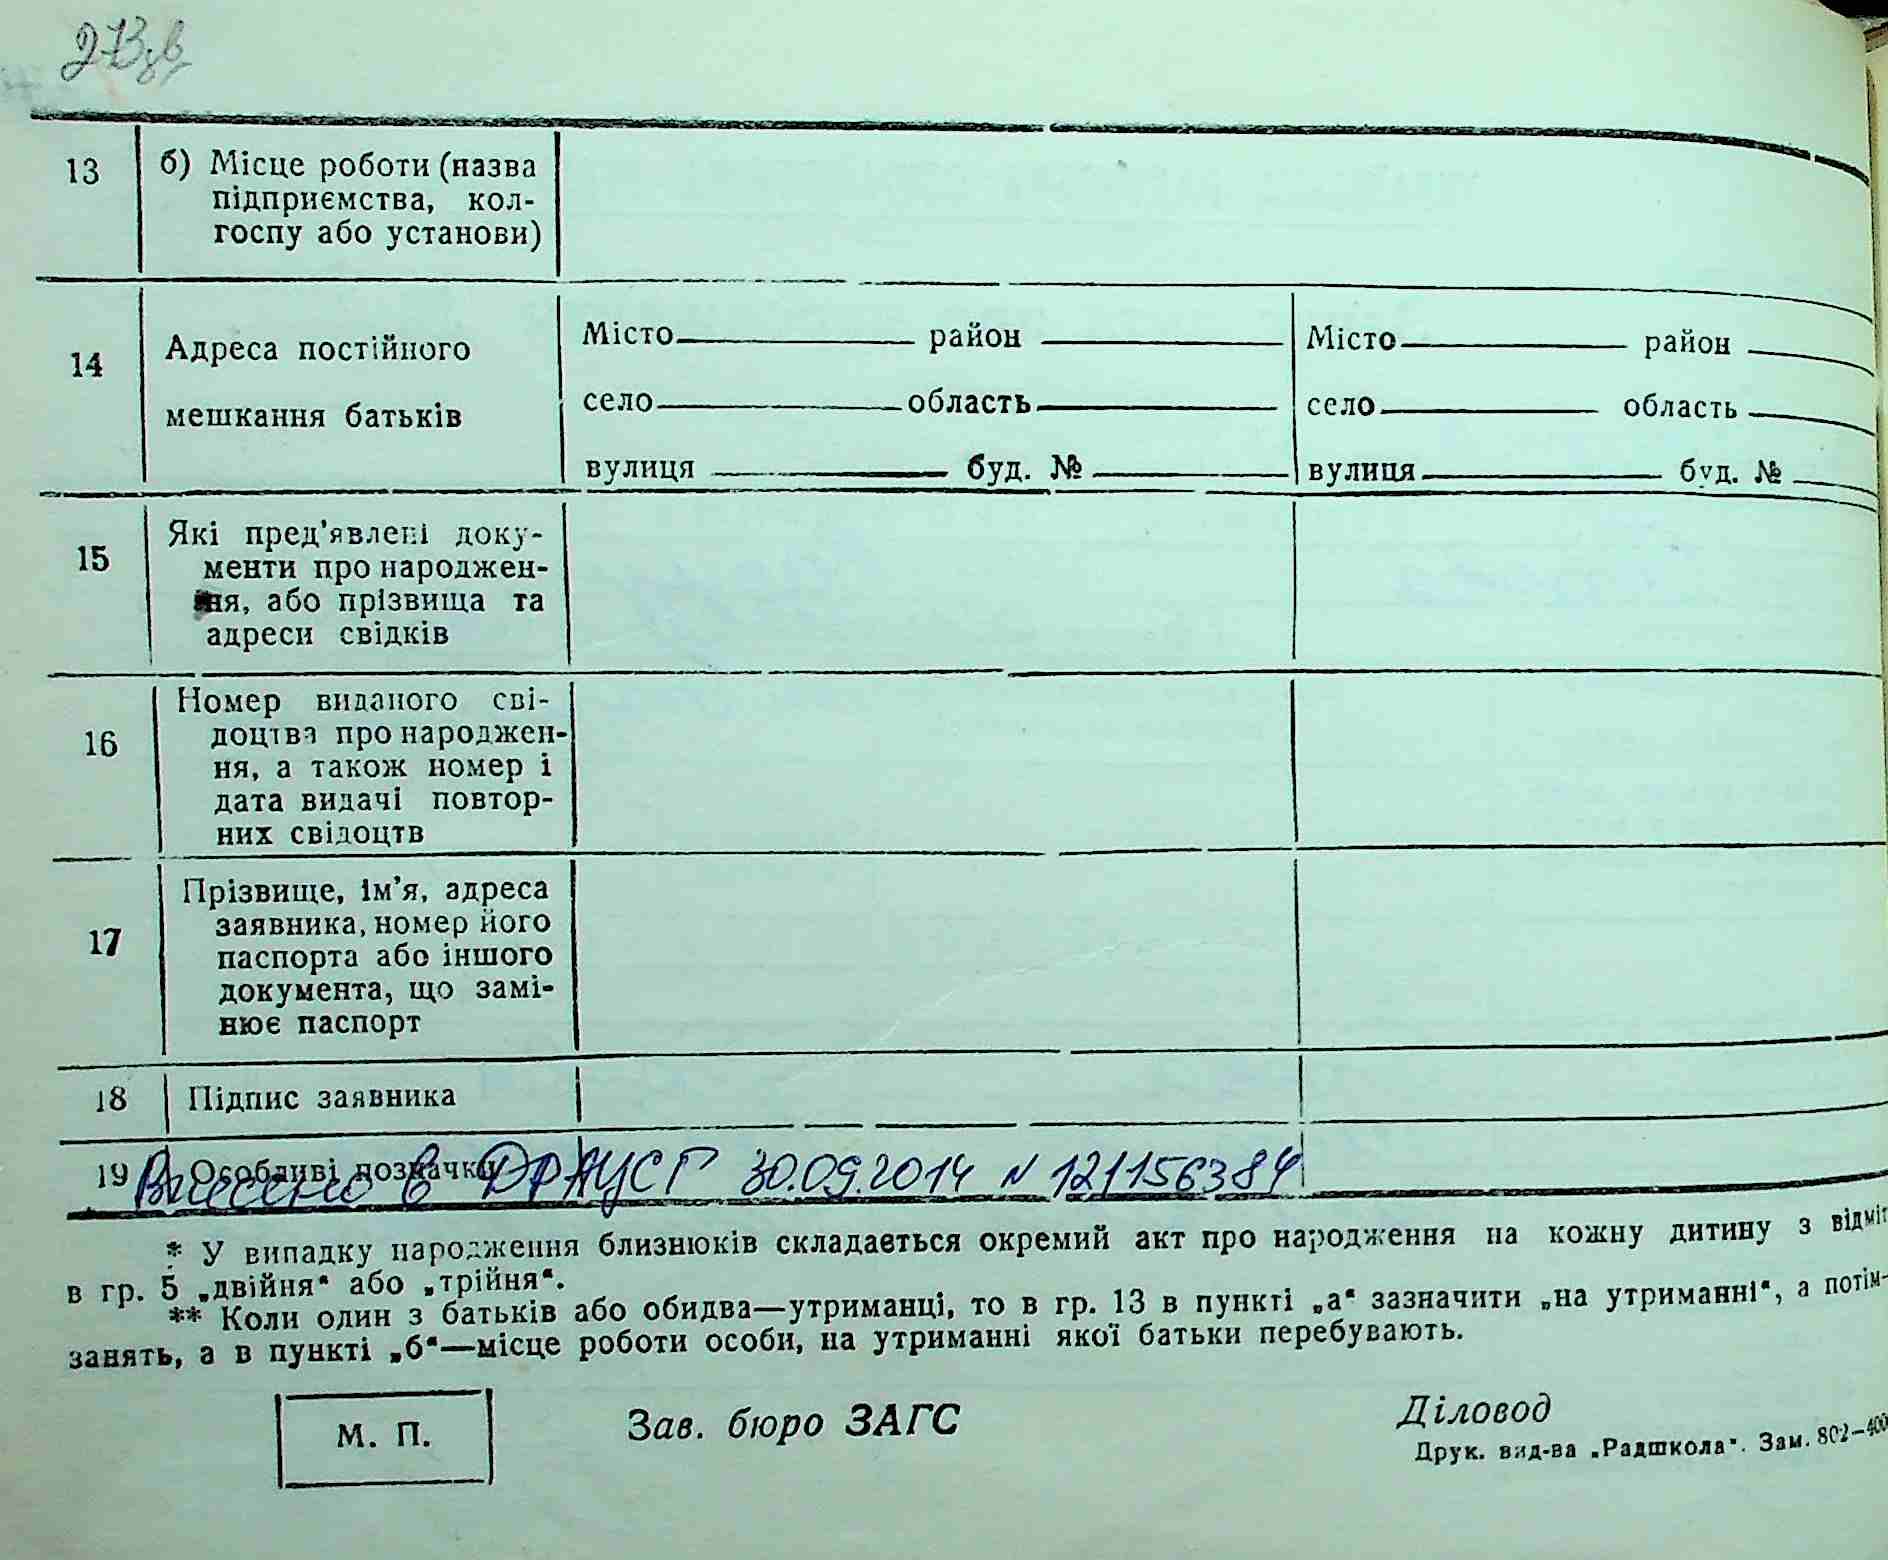 273зв
13 б) Місце роботи (назва
підприємства, кол-
госпу або установи)
14 Адреса постійного
мешкання батьків
Місто район
село область
вулиця буд. №
Місто район
село область
вулиця буд. №
15 Які пред'явлені доку-
менти про народжен-
ня, або прізвища та
адреси свідків
16 Номер виданого сві-
доцтва про народжен-
ня, а також номер і
дата видачі повтор-
них свідоцтв
17 Прізвище, ім'я, адреса
заявника, номер його
паспорта або іншого
документа, що замі-
нює паспорт
18 Підпис заявника
19 Особливі позначки
Внесено в ДРАЦСГ 30.09.2014 N 121156384
* У випадку народження близнюків складається окремий акт про народження на кожну дитину з відміт
в гр. 5 „двійня“ або „трійня“.
** Коли один з батьків або обидва—утриманці, то в гр. 13 в пункті „а“ зазначити „на утриманні“, а потім-
занять, а в пункті „б“—місце роботи особи, на утриманні якої батьки перебувають.
М. П.
Зав. бюро ЗАГС
Діловод
Друк. вид-ва „Радшкола“. Зам. 802—400